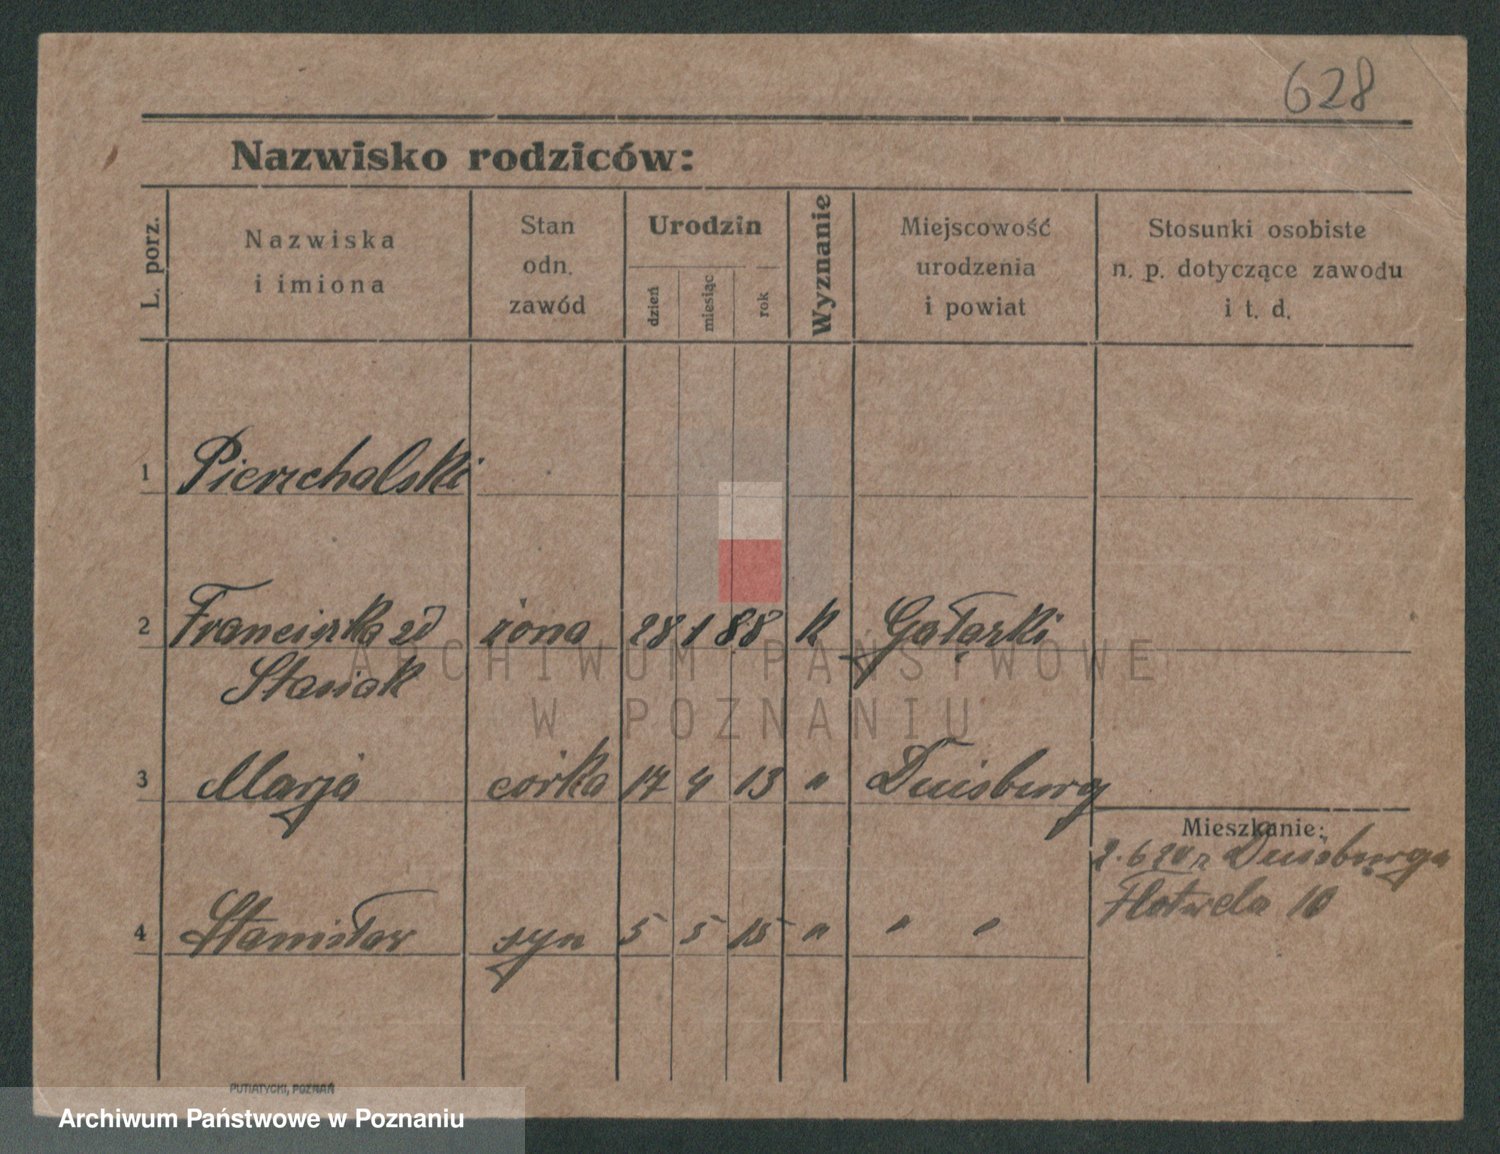 628
Nazwisko rodziców:
L. porz.
Nazwiska
i imiona
Stan
odn.
zawód
Urodzin
dzień
miesiąc
rok
Wyznanie
Miejscowość
urodzenia
i powiat
Stosunki osobiste
n. p. dotyczące zawodu
i t. d.
1 Pierzchalski
2 Franciszka zd żona 28 1 88 k Gałązki
Stasiak
3 Marja córka 17 4 13 " Duisburg
Mieszkanie:
Duisburga
10
4 Stanisław syn 5 5 15 " " "
ARCHIWUM PAŃSTWOWE
W POZNANIU
PUTIATYCKI, POZNAŃ
Archiwum Państwowe w Poznaniu